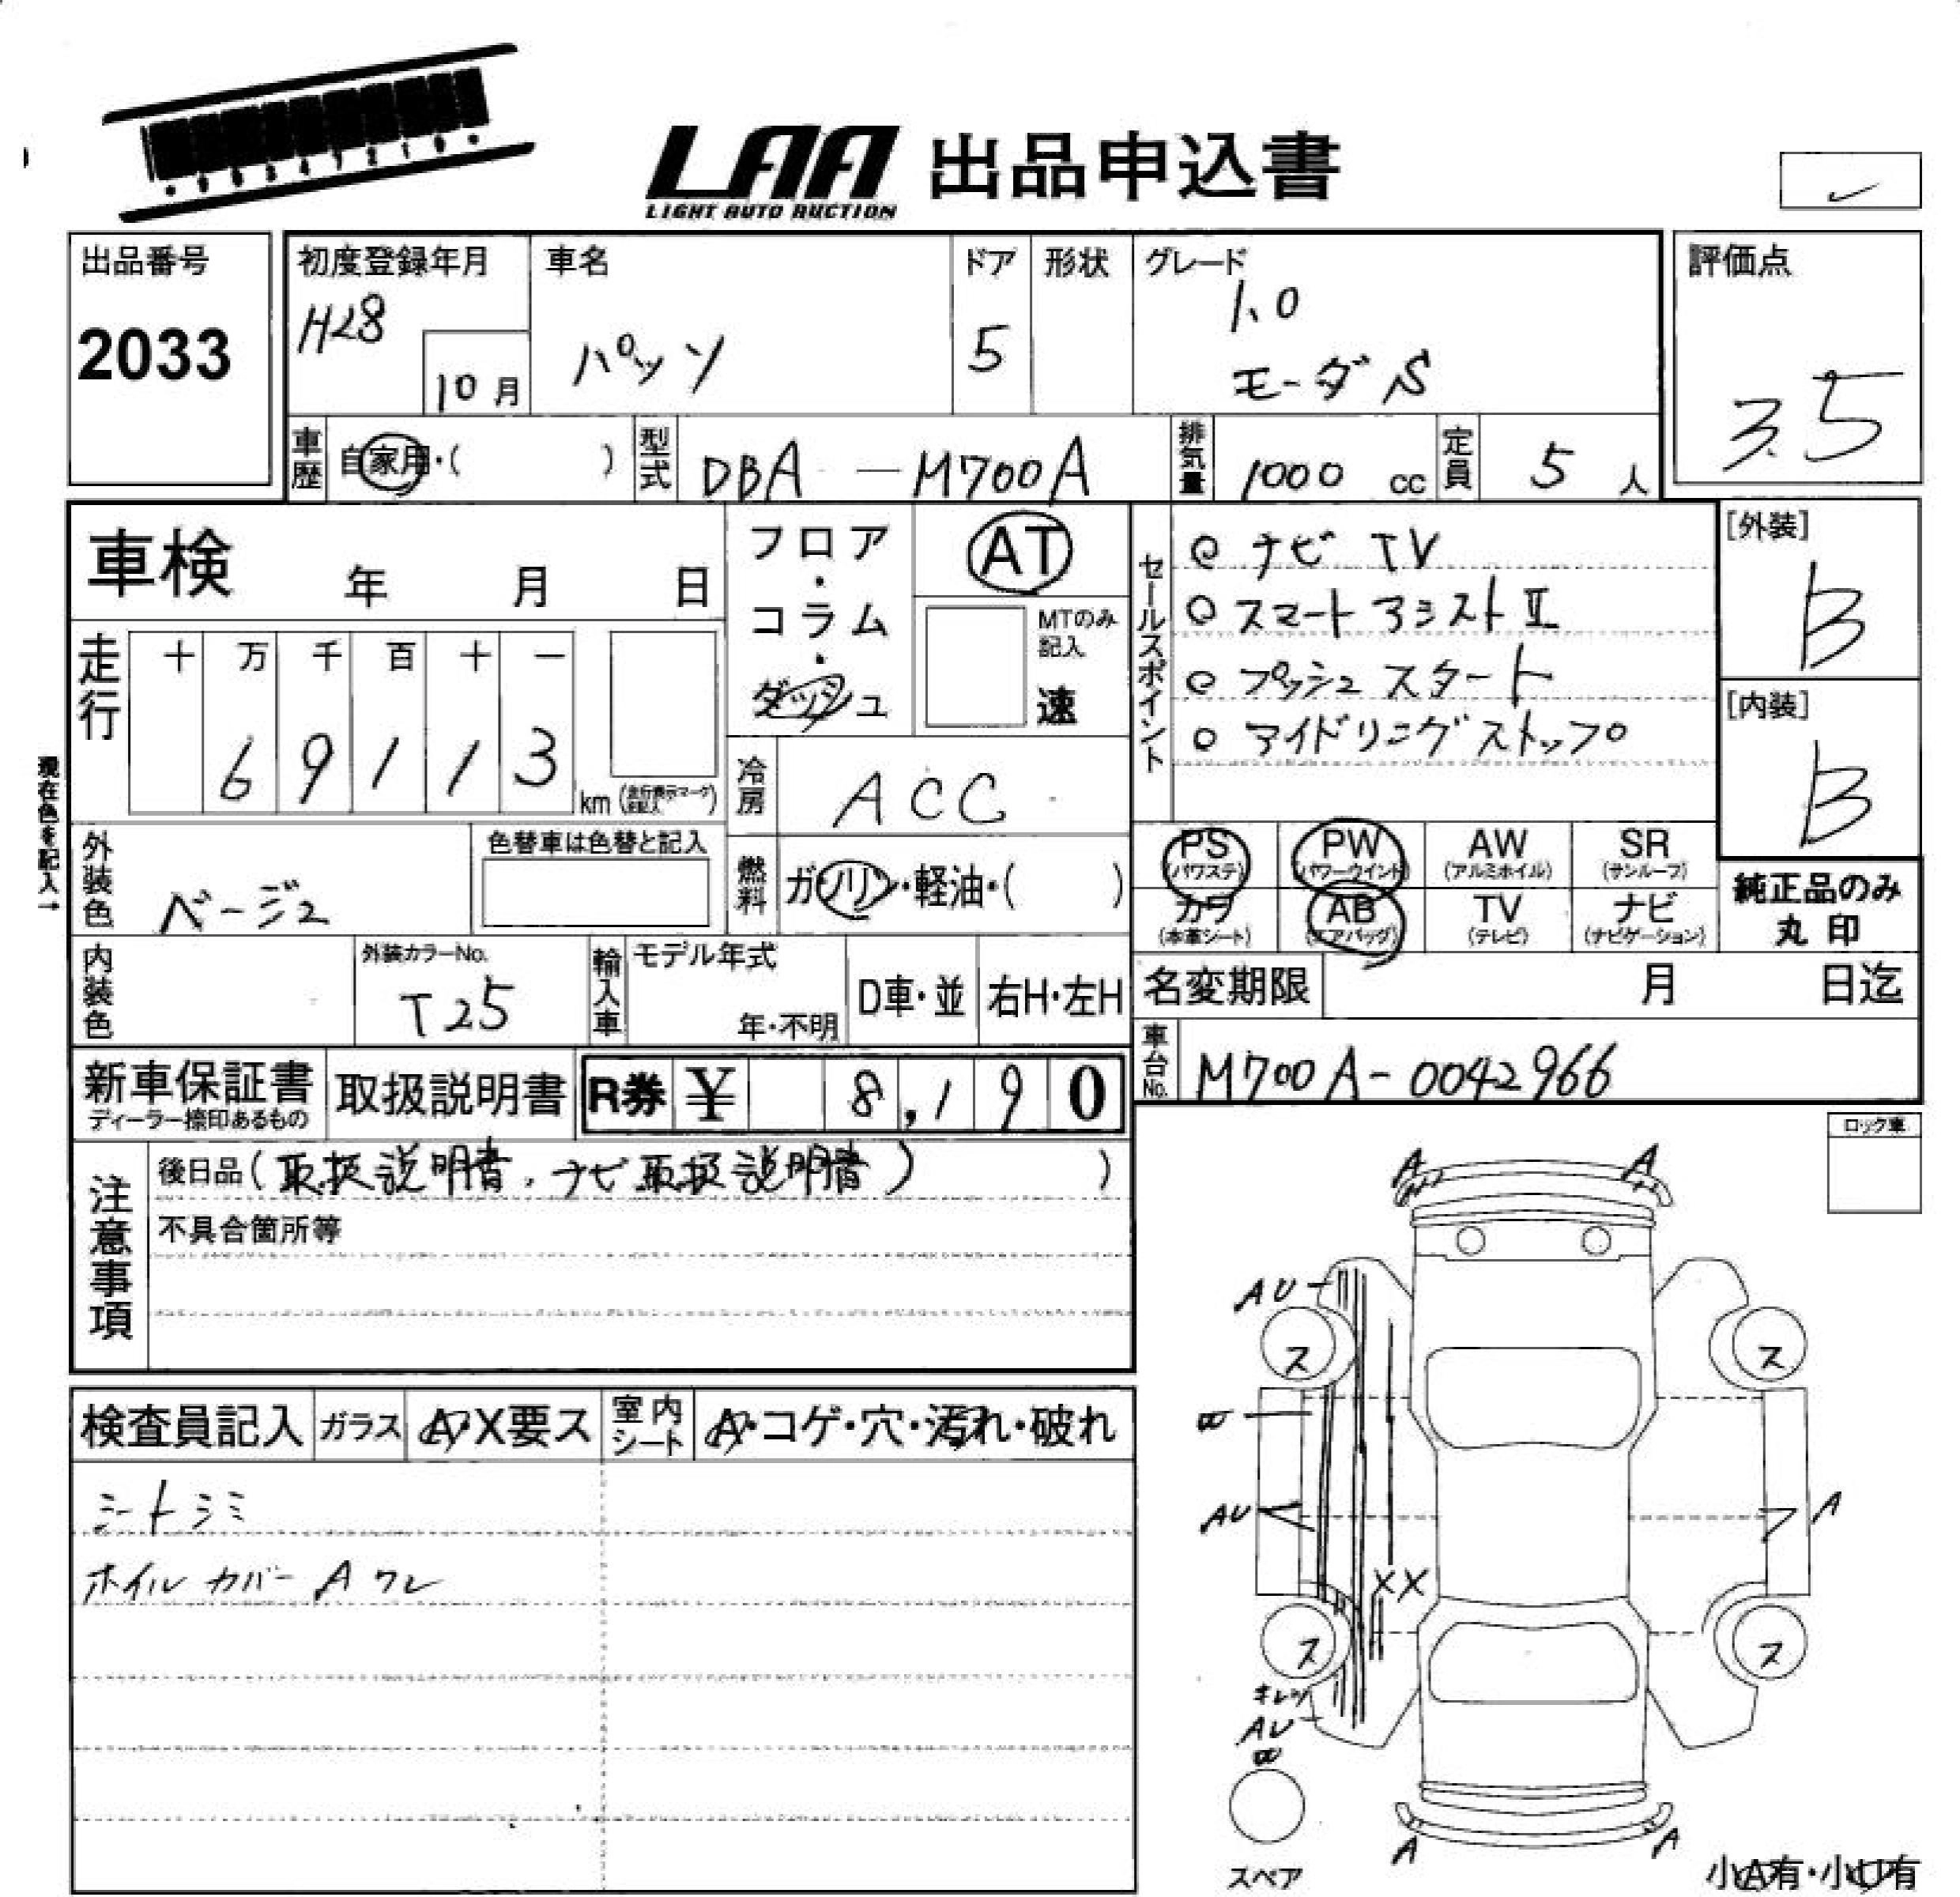 LAA 出品申込書
LIGHT AUTO AUCTION
出品番号
2033
初度登録年月
H28
10月
車名
パッソ
ドア
5
形状
グレード
1.0
モーダS
評価点
3.5
車歴
自家用・( )
型式
DBA-M700A
排気量
1000 cc
定員
5 人
車検 年 月 日
フロア・コラム・ダッシュ
AT
MTのみ記入
速
セールスポイント
ナビ TV
スマートアシストⅡ
プッシュスタート
アイドリングストップ
[外装]
B
[内装]
B
走行
十 万 千 百 十 一
6 9 1 1 3
km
現在色を記入→
冷房
ACC
外装色
ベージュ
色替車は色替と記入
燃料
ガソリン・軽油・( )
PS
(パワステ)
PW
(パワーウインド)
AW
(アルミホイル)
SR
(サンルーフ)
カワ
(本革シート)
AB
(エアバッグ)
TV
(テレビ)
ナビ
(ナビゲーション)
純正品のみ
丸印
内装色
外装カラーNo.
T25
輸入車
モデル年式
年・不明
D車・並
右H・左H
名変期限 月 日迄
車台No.
M700A-0042966
新車保証書
ディーラー捺印あるもの
取扱説明書
R券 ¥ 8,190
注意事項
後日品(取扱説明書、ナビ取扱説明書)
不具合箇所等
ロック車
検査員記入
ガラス
A・X要ス
室内シート
A・コゲ・穴・汚れ・破れ
シートシミ
ホイルカバーAワレ
A
A
AU
ス
ス
AU
A
XX
ス
ス
キレツ
AU
A
A
スペア
小A有・小U有